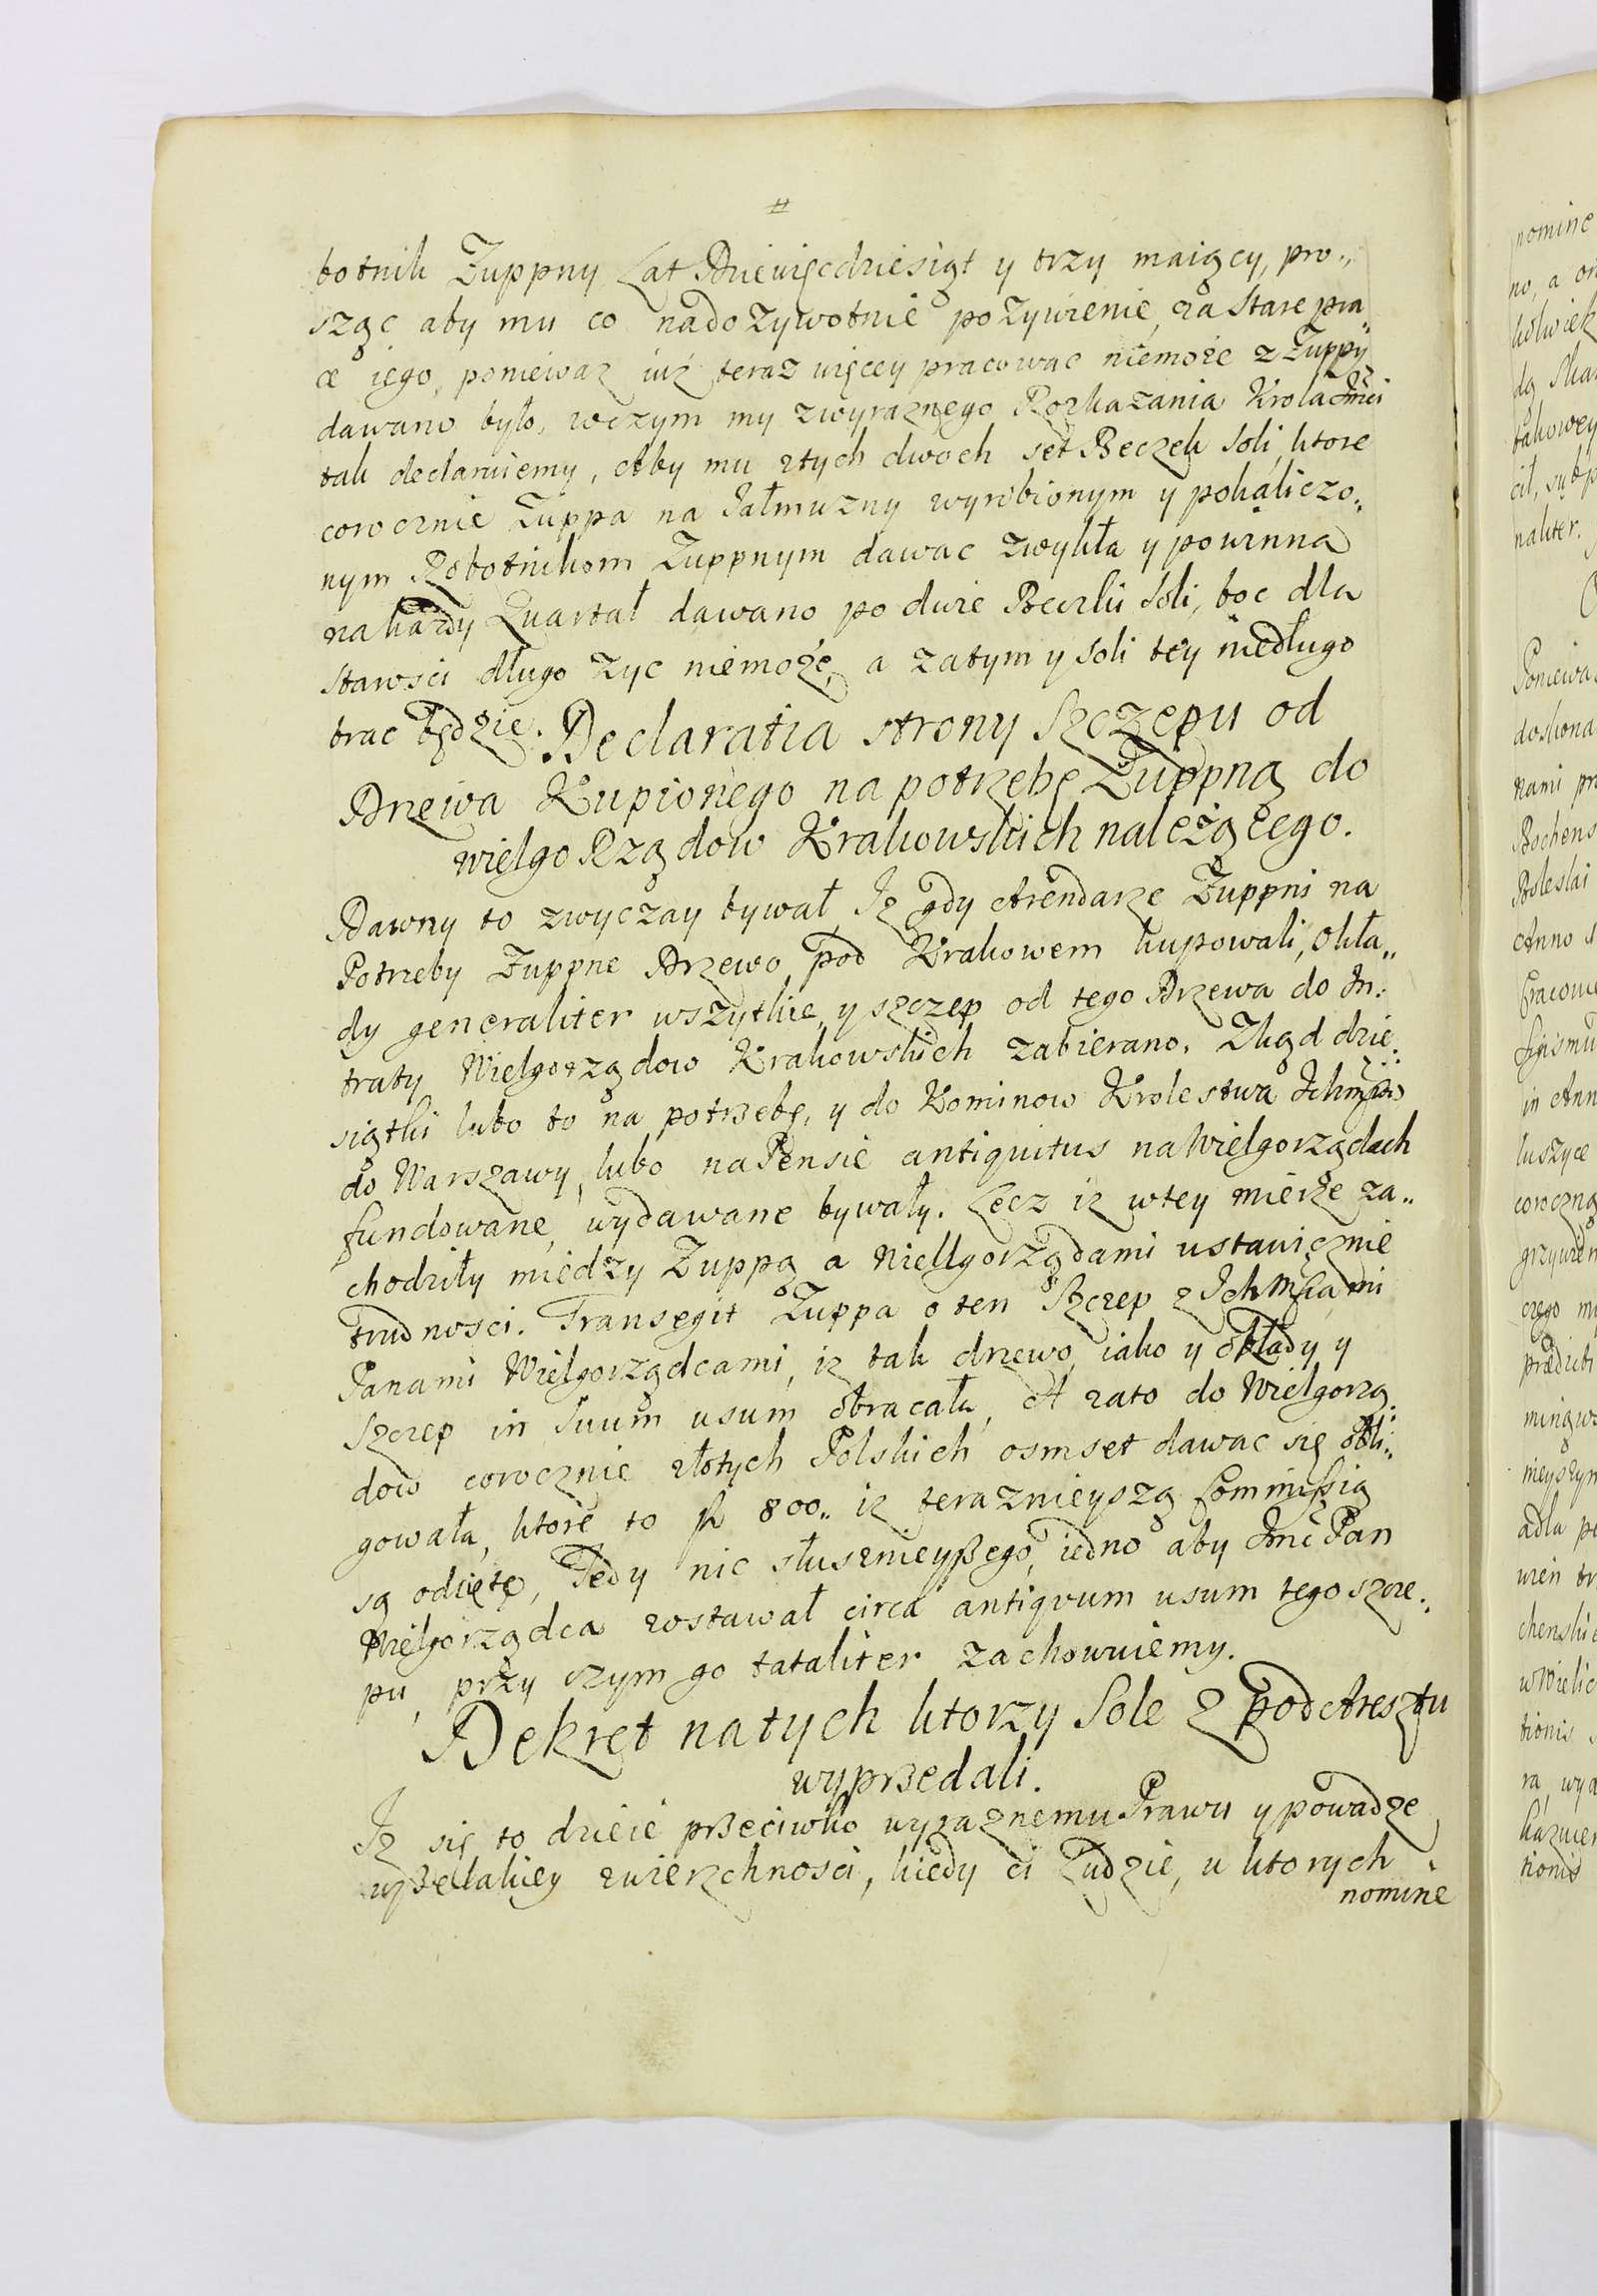 #
botnik Zuppny Lat Dziewięcdziesiąt y trzy maiący, pro„
sząc aby mu co nadożywotnie pożywienie, za stare pra„
ce iego, poniewaz iuż teraz więcey pracowac niemoże z Zuppy
dawano było, wczym my zwyraznego Rozkazania Krola Jmci
tak declaruiemy, Aby mu ztych dwoch set Beczek soli, ktore
corocznie Zuppa na Jałmuzny wyrobionym y pokaliczo„
nym Robotnikom Zuppnym dawac zwykła y powinna
na kazdy Quartał dawano po dwie Beczki soli, boc dla
starosci długo zyc niemoże, a zatym y soli tey niedługo
brac będzie. Declaratia strony Szczepu od
Drzewa Kupionego na potrzebę Zuppną do
wielgo Rządow Krakowskich należącego.
Dawny to zwyczay bywał, Iz gdy Arendarze Zuppni na
Potrzeby Zuppne Drzewo pod Krakowem kupowali, okła„
dy generaliter wszytkie, y szczep od tego Drzewa do In:
traty Wielgorządow Krakowskich zabierano. Zkąd dzie:
siątki lubo to na potrzebę, y do Kominow Krolestwa Ichmsciow
do Warszawy, lubo na Pensie antiquitus na Wielgorządach
fundowane, wydawane bywały. Lecz iz wtey mierze za„
chodziły miedzy Zuppą a Wiellgorządami ustawicznie
trudnosci. Transegit Zuppa o ten Szczep z Ich Msciami
Panami Wielgorządcami, iz tak drzewo, iako y okłady y
Szczep in suum usum obracała, A zato do Wielgorzą:
dow corocznie złotych Polskich osmset dawac się obli„
gowała, ktore to fl 800„ iz teraznieyszą Commissią
są odcięte, Tedy nic słusznieyszego, iedno aby Jmc Pan
Wielgorządca zostawał circa antiquum usum tego szcze„
pu, przy czym go tataliter zachowuiemy.
Dekret na tych ktorzy Sole z pod Aresztu
wyprzedali.
Iz się to dzieie przeciwko wyraznemu Prawu y powadze
wszelakiey zwierzchnosci, kiedy ci Ludzie, u ktorych
nomine
nomine
no, a
naliter.
Poniewa
nami
Bochens
Boleslai
Anno
in Ann
luszyce
coroczną
czego
mingws
chenskie
tionis
tionis